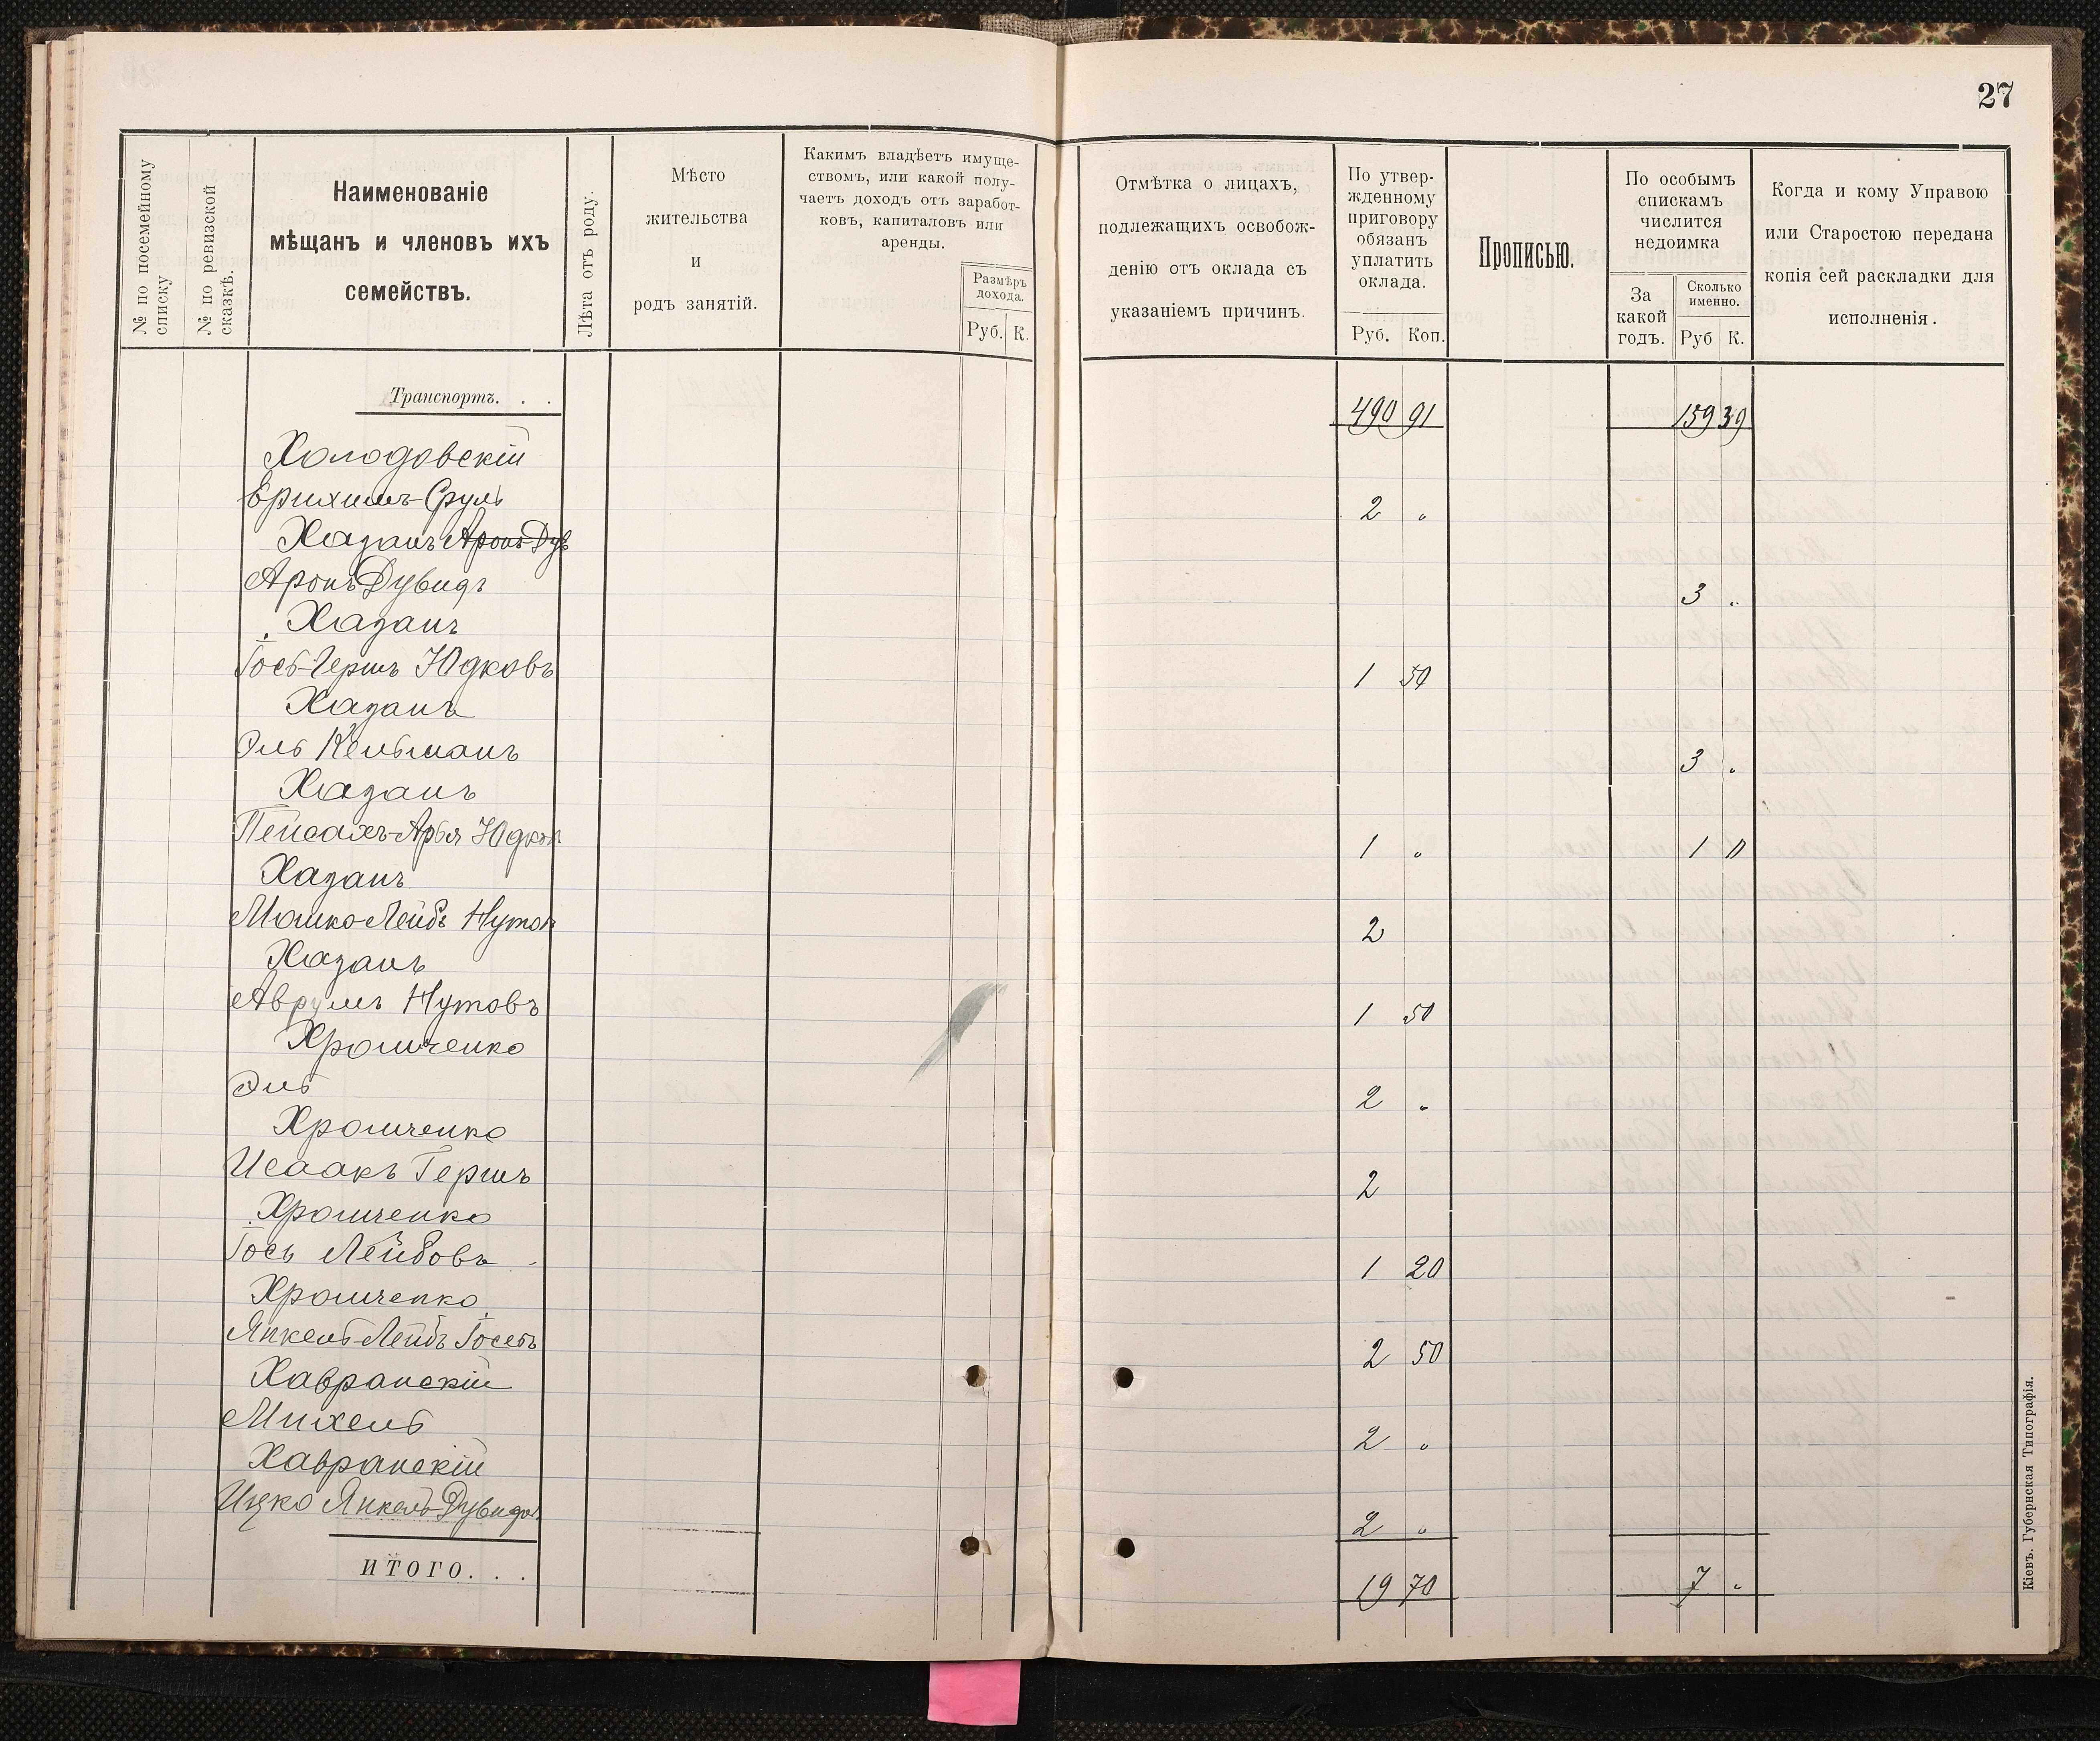 27
№ по посемейному списку
№ по ревизской сказкѣ.
Наименованіе
мѣщанъ и членовъ ихъ
семействъ.
Лѣта отъ роду.
Мѣсто
жительства
и
родъ занятій.
Какимъ владѣетъ имуще-
ствомъ, или какой полу-
чаетъ доходъ отъ заработ-
ковъ, капиталовъ или
аренды.
Размѣръ
дохода.
Руб. К.
Отмѣтка о лицахъ,
подлежащихъ освобож-
денію отъ оклада съ
указаніемъ причинъ.
По утвер-
жденному
приговору
обязанъ
уплатить
оклада.
Руб. Коп.
Прописью.
По особымъ
спискамъ
числится
недоимка
За
какой
годъ.
Сколько
именно.
Руб К.
Когда и кому Управою
или Старостою передана
копія сей раскладки для
исполненія.
Транспортъ. . . 490 91 159 39
Холодовскій
Ерихимъ-Сруль 2 „
Хазанъ Аронъ Дув
Аронъ Дувидъ 3 „
Хазанъ
Іось-Гершъ Юдковъ 1 50
Хазанъ
Эль Кельманъ 3 „
Хазанъ
Пейсахъ-Арья Юдков 1 „ 1 „
Хазанъ
Мошко-Лейбъ Нутов 2
Хазанъ
Аврумъ Нутовъ 1 50
Хромченко
Эль 2 „
Хромченко
Исаакъ Гершъ 2
Хромченко
Іось Лейбовъ 1 20
Хромченко
Янкель-Лейбъ Іосевъ 2 50
Хавранскій
Михель 2 „
Хавранскій
Ицко Янкель-Дувидов 2 „
ИТОГО. . . 19 70 7 „
Кіевъ. Губернская Типографія.